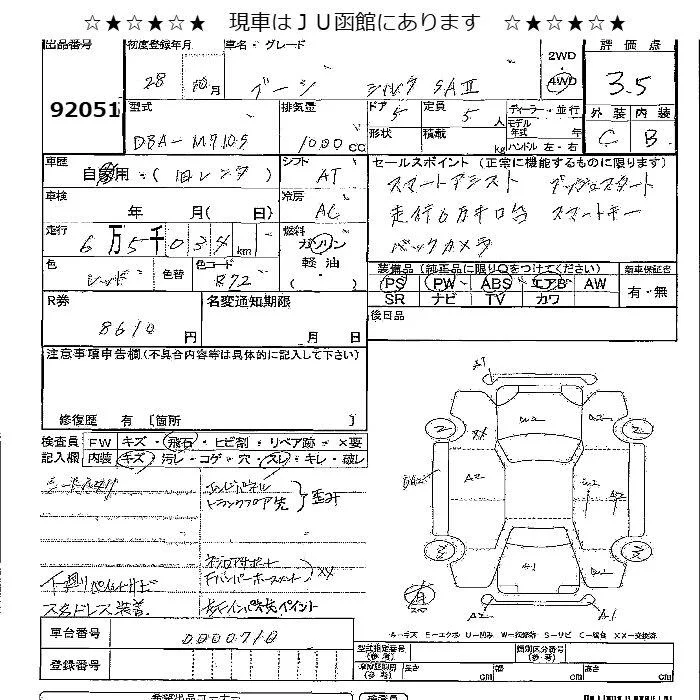 ☆★☆★☆★ 現車はＪＵ函館にあります ☆★☆★☆★
出品番号
92051
初度登録年月
28 年 10 月
車名・グレード
ブーン シルク SAⅡ
2WD
4WD
評価点
3.5
外装 内装
C B
型式
DBA-M710S
排気量
1000 CC
ドア
5
定員
5 人
形状 積載 kg
ディーラー・並行
モデル
年式 年
ハンドル 左・右
車歴
自家用・( 旧レンタ )
シフト
AT
車検
年 月( 日)
冷房
AC
走行
6万5千034 km
燃料
ガソリン
軽油
色
レッド
色替
色コード
R72
セールスポイント (正常に機能するものに限ります)
スマートアシスト プッシュスタート
走行6万キロ台 スマートキー
バックカメラ
装備品 (純正品に限り○をつけてください)
PS PW ABS エアB AW
SR ナビ TV カワ
新車保証書
有・無
R券
8610 円
名変通知期限
月 日
後日品
注意事項申告欄(不具合内容等は具体的に記入して下さい)
修復歴 有 〔箇所 〕
検査員
記入欄
FW キズ・飛石・ヒビ割・リペア跡・×要
内装 キズ・汚レ・コゲ・穴・スレ・キレ・破レ
エンドパネル
トランクフロア先
歪み
下廻りペイントサビ
スタッドレス装着
ラジエタサポート
Fバンパーホースメント
XX
A1
A2
A2
A1
A-1
車台番号
0000710
登録番号
A－キズ E－エクボ U－凹み W－補修跡 S－サビ C－腐食 XX－交換済
型式指定番号
(参考)
類別区分番号
(参考)
長さ cm 幅 cm 高さ cm
希望出品コーナー
検査員